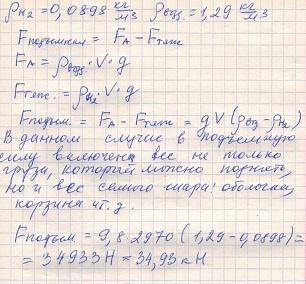 ρн₂ = 0,0898 кг/м3 ρвозд. = 1,29 кг/м3
Fподъемная = FА − Fтяж
FА = ρвозд. · V · g
Fтяж. = ρн₂ · V · g
Fподъем. = FА − Fтяж = gV (ρвз − ρн₂)
В данном случае в подъемную
силу включена вес не только
груза, который можно поднять,
но и вес самого шара: оболочки,
корзина и т. д.
Fподъем = 9,8 · 2970 (1,29 − 0,0898) =
= 34933Н = 34,93 кН